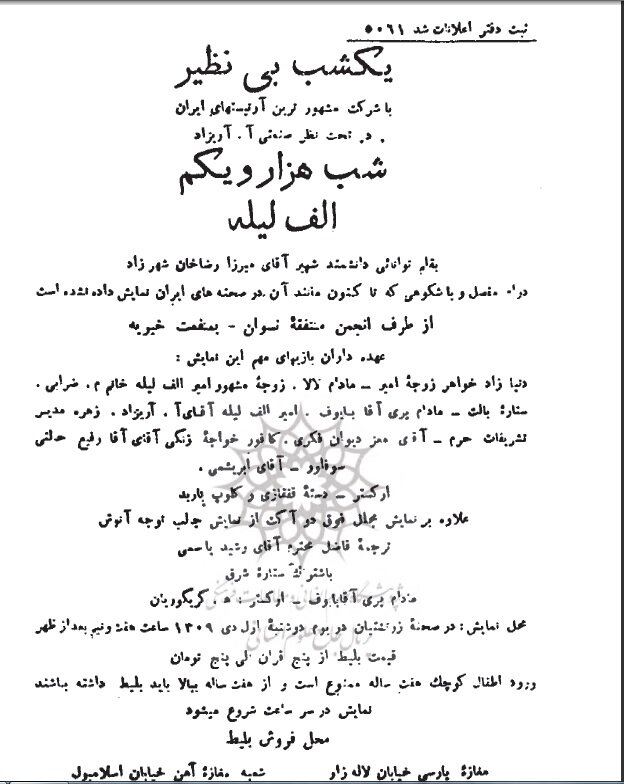 ثبت دفتر اعلانات شد ۵۰۶۱
یکشب بی نظیر
با شرکت مشهور ترین آرتیستهای ایران
در تحت نظر صنعتی آ. آریزاد
شب هزار و یکم
الف لیله
بقلم توانائی دانشمند شهیر آقای میرزا رضاخان شهرزاد
درام مفصل و با شکوهی که تا کنون مانند آن در صحنه های ایران نمایش داده نشده است
از طرف انجمن متفقهٔ نسوان - بمنفعت خیریه
عهده داران بازیهای مهم این نمایش :
دنیا زاد خواهر زوجهٔ امیر ــ مادام لالا . زوجهٔ مشهور امیر الف لیله خانم م . ضرابی .
ستارهٔ بالت ــ مادام پری آقا بابوف . امیر الف لیله آقای آ . آریزاد . زهره مدیر
تشریفات حرم ــ آقای معز دیوان فکری . کافور خواجهٔ زنگی آقای آقا رفیع حالتی
سوفلور ــ آقای ابریشمی .
ارکستر ــ دستهٔ قفقازی و کلوپ باربد
علاوه بر نمایش مجلل فوق دو آکت از نمایش جالب توجه آنوش
ترجمهٔ فاضل محترم آقای رشید یاسمی
باشتراک ستارهٔ شرق
مادام پری آقابابوف ــ ارکستر : ه . گریگوریان
محل نمایش : در صحنهٔ زرتشتیان دو یوم دوشنبهٔ اول دی ۱۳۰۹ ساعت هفت و نیم بعد از ظهر
قیمت بلیط از پنج قران الی پنج تومان
ورود اطفال کوچک هفت ساله ممنوع است و از هفت ساله ببالا باید بلیط داشته باشند
نمایش در سر ساعت شروع میشود
محل فروش بلیط
مغازهٔ پارسی خیابان لاله زار شعبه مغازهٔ آهن خیابان اسلامبول